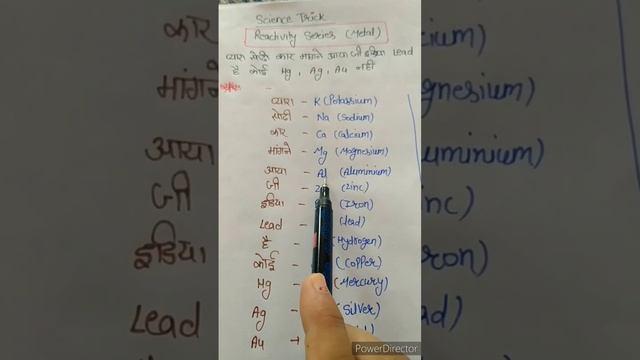 Science Trick
Reactivity Series (Metal)
प्यारा सोडी कार मांगने आया जी इंडिया Lead
है कोई Hg, Ag, Au नहीं
प्यारा - K (Potassium)
सोडी - Na (Sodium)
कार - Ca (Calcium)
मांगने - Mg (Magnesium)
आया - Al (Aluminium)
जी - (Zinc)
इंडिया - (Iron)
Lead - (lead)
है - (Hydrogen)
कोई - (Copper)
Hg - (Mercury)
Ag - (Silver)
Au →
PowerDirector